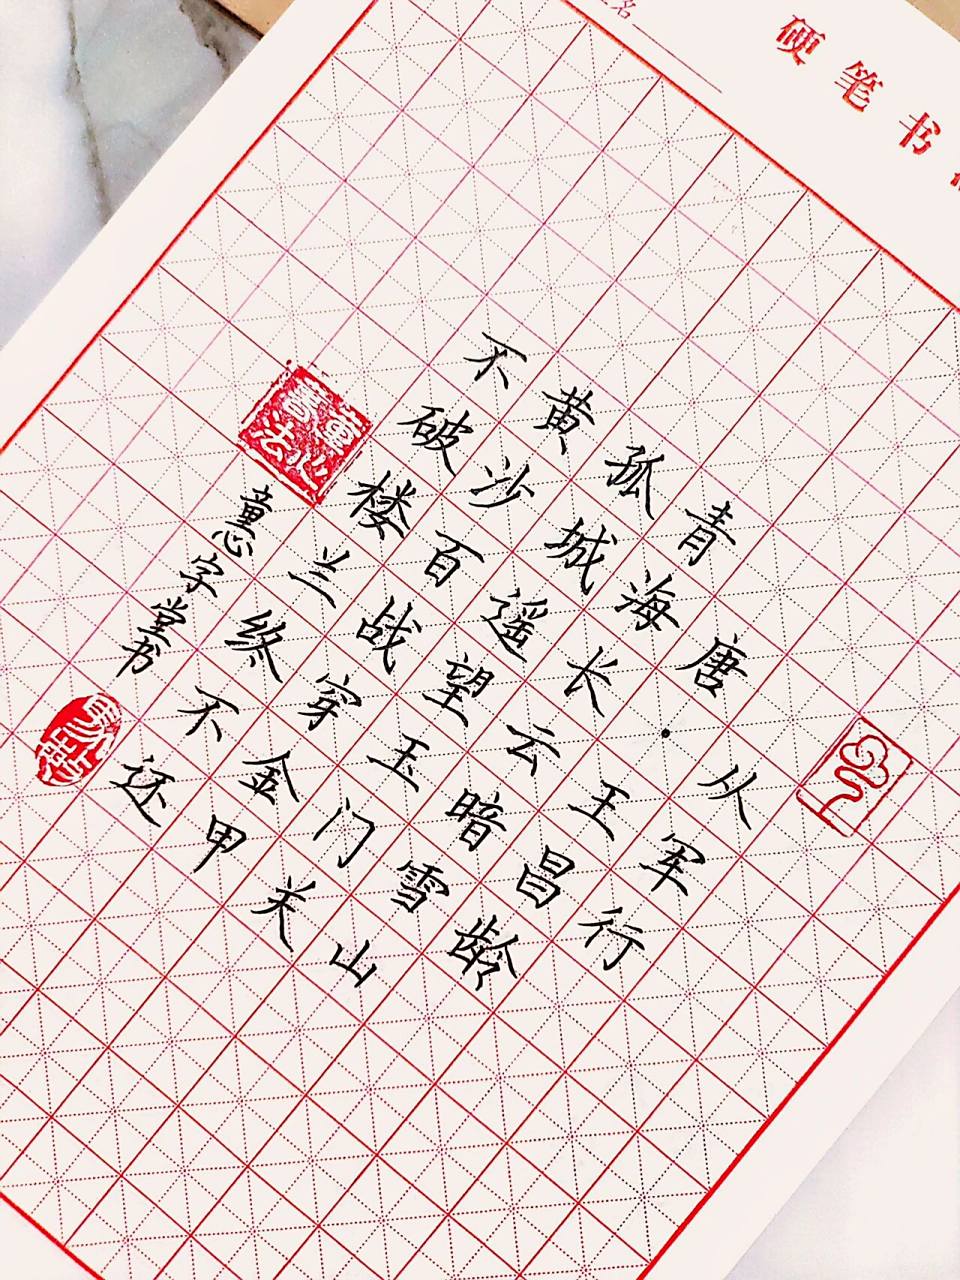 名
硬笔书
从军行
唐·王昌龄
青海长云暗雪山
孤城遥望玉门关
黄沙百战穿金甲
不破楼兰终不还
童心字堂书
童心
書法